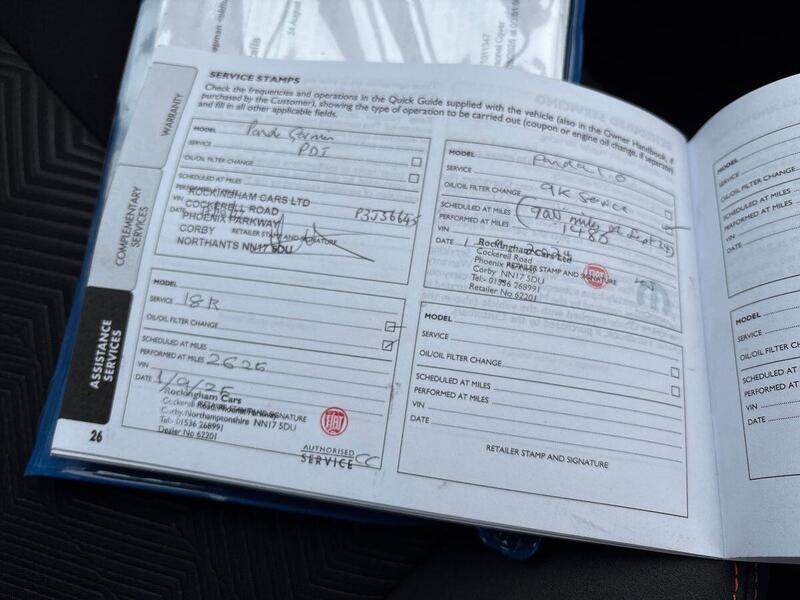 WARRANTY
COMPLEMENTARY
SERVICES
ASSISTANCE
SERVICES
26
SERVICE STAMPS
Check the frequencies and operations in the Quick Guide supplied with the vehicle (also in the Owner Handbook, if
purchased by the Customer), showing the type of operation to be carried out (coupon or engine oil change, if separate)
and fill in all other applicable fields.
MODEL Panda
SERVICE PDI
OIL/OIL FILTER CHANGE
SCHEDULED AT MILES
PERFORMED AT MILES
VIN P3J56645
DATE
ROCKINGHAM CARS LTD
COCKERELL ROAD
PHOENIX PARKWAY
CORBY
NORTHANTS NN17 5DU
RETAILER STAMP AND SIGNATURE
MODEL Panda 1.0
SERVICE 9K Service
OIL/OIL FILTER CHANGE
SCHEDULED AT MILES
PERFORMED AT MILES 1480
VIN
DATE
Rockingham Cars Ltd
Cockerell Road
Phoenix Parkway
Corby NN17 5DU
Tel:- 01536 268991
Retailer No 62201
RETAILER STAMP AND SIGNATURE
FIAT
MODEL
SERVICE 18K
OIL/OIL FILTER CHANGE
SCHEDULED AT MILES
PERFORMED AT MILES 2626
VIN
DATE 1/9/25
Rockingham Cars
Cockerell Road, Phoenix Parkway
Corby. Northamptonshire NN17 5DU
Tel:- 01536 268991
Dealer No 62201
RETAILER STAMP AND SIGNATURE
FIAT
AUTHORISED
SERVICE CC
MODEL
SERVICE
OIL/OIL FILTER CHANGE
SCHEDULED AT MILES
PERFORMED AT MILES
VIN
DATE
RETAILER STAMP AND SIGNATURE
MODEL
SERVICE
OIL/OIL FILTER
SCHEDULED AT
PERFORMED AT
VIN
DATE
MODEL
SERVICE
OIL/OIL FILTER CH
SCHEDULED AT M
PERFORMED AT
VIN
DATE